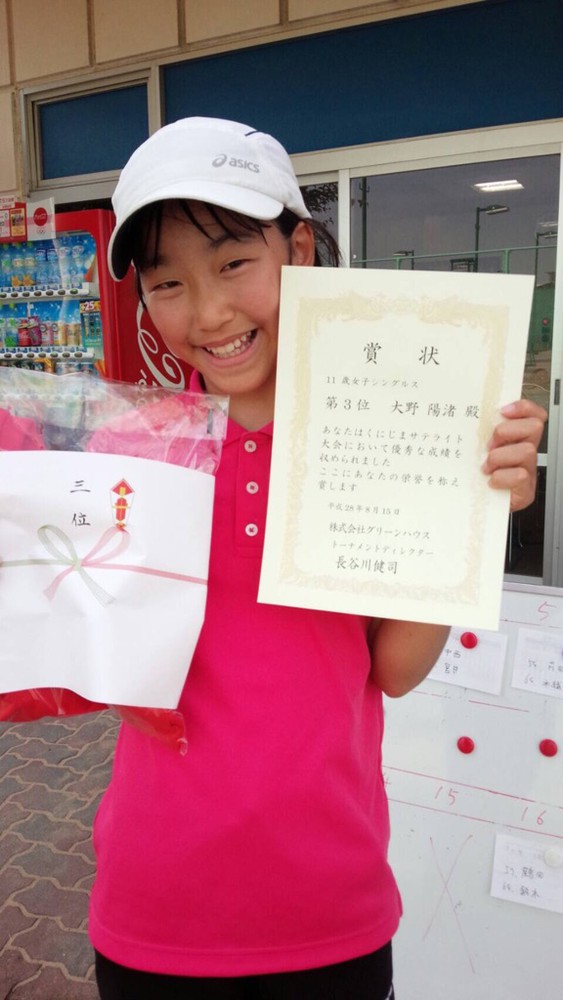 asics
賞状
11歳女子シングルス
第3位 大野 陽渚 殿
あなたはくにじまサテライト
大会において優秀な成績を
収められました
ここにあなたの栄誉を称え
賞します
平成28年8月15日
株式会社グリーンハウス
トーナメントディレクター
長谷川健司
三位
5
15
16